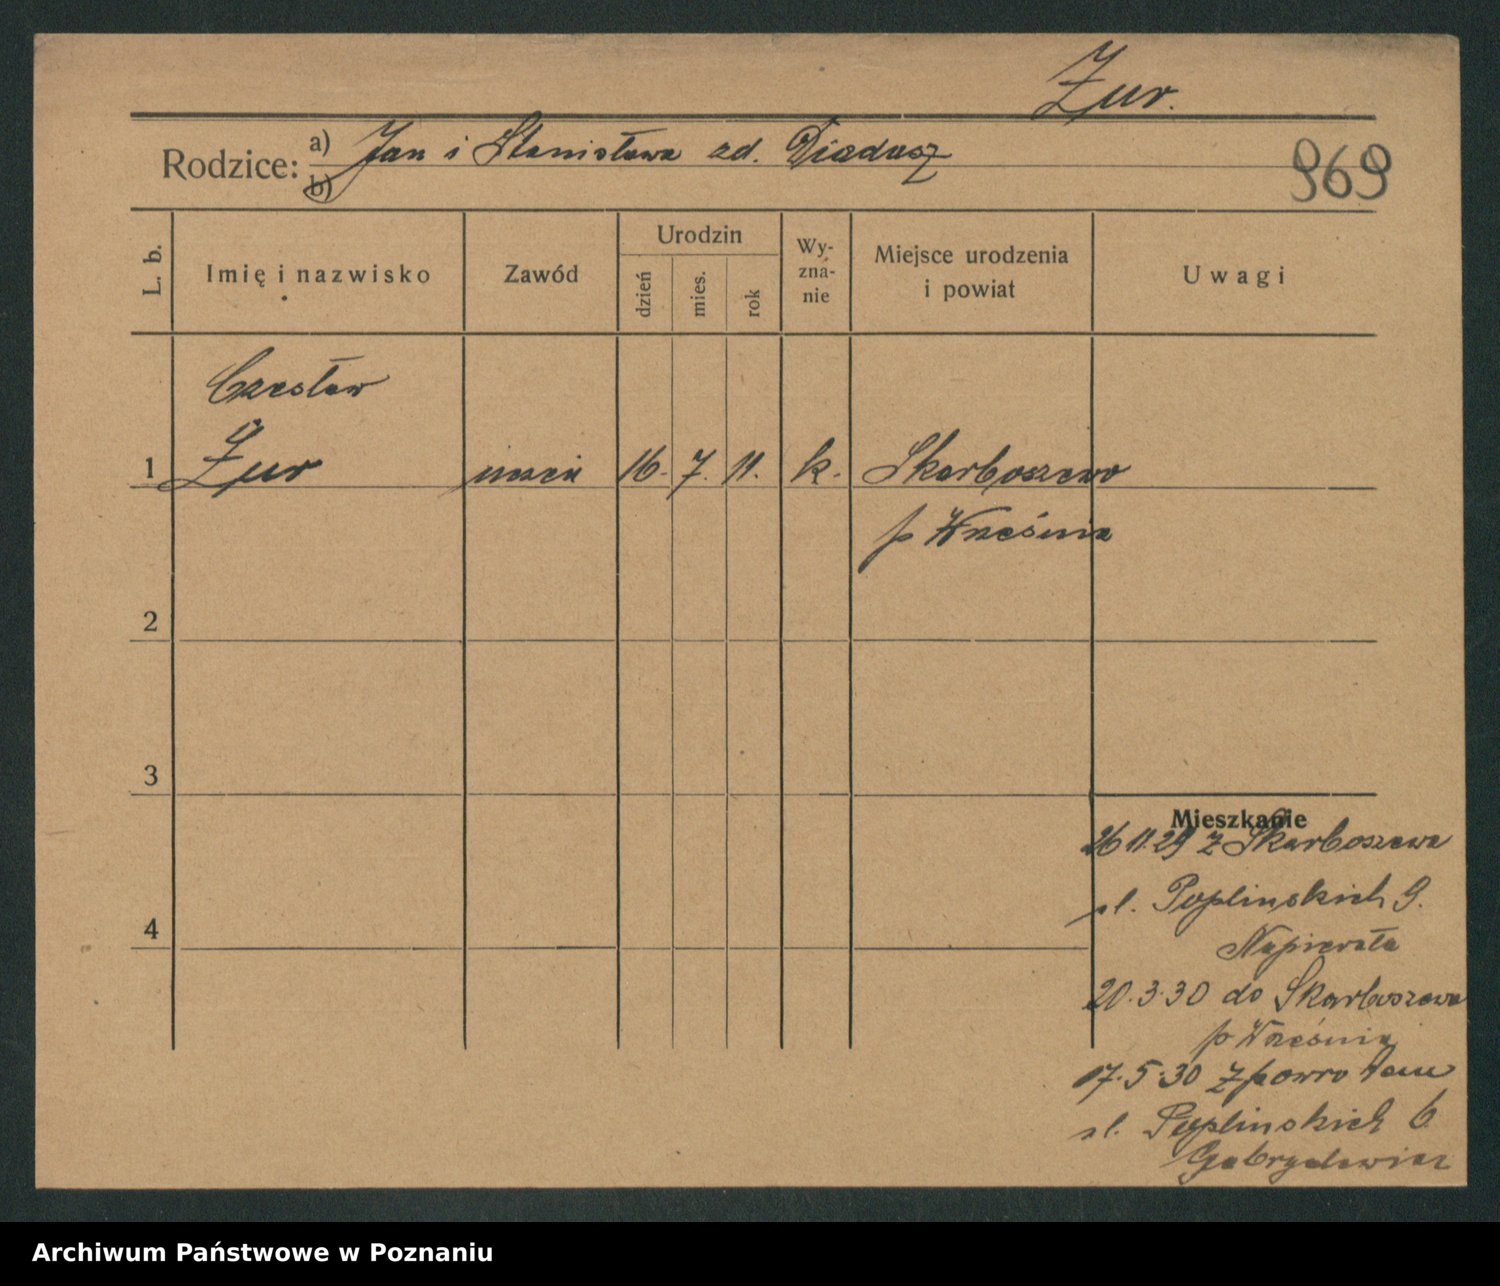 Żur.
Rodzice: a) Jan i Stanisława zd. Diadusz
b)
969
L. b.
Imię i nazwisko
Zawód
Urodzin
dzień
mies.
rok
Wy-
zna-
nie
Miejsce urodzenia
i powiat
Uwagi
Czesław
1 Żur uczeń 16. 7. 11. k. Skarboszewo
p Września
2
3
Mieszkanie
26 11.29 z Skarboszewa
ul. Poplinskich 9.
Napierała
4
20.3.30 do Skarboszewa
p Września
17.5.30 z powrotem
ul. Poplinskich 6
Gabryelewicz
Archiwum Państwowe w Poznaniu